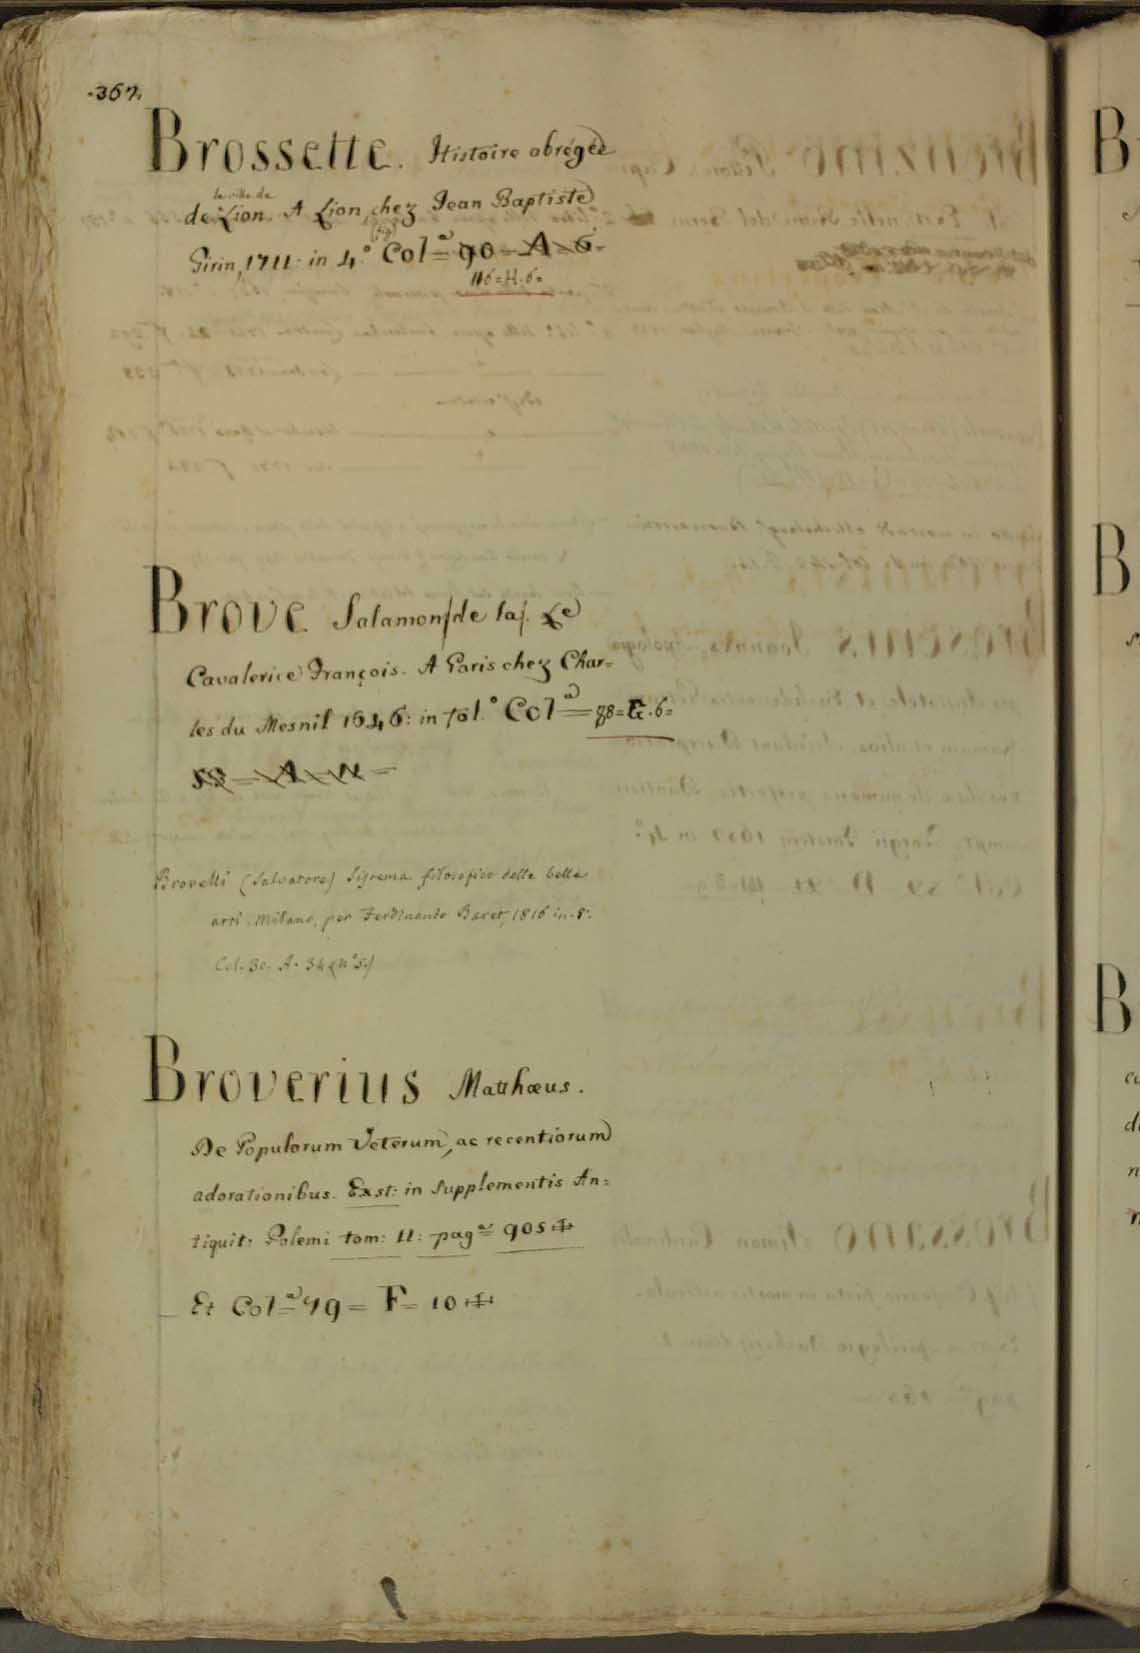 .367.
Brossette. Histoire abrégée
la ville de
de Lion. A Lion, chez Jean Baptiste
Girin, 1711: in 4.° (fig) Col.ª = 90 - A. 6 =
116 = H. 6 =
Brove Salamon (de la). Le
Cavalerice François. A Paris chez Char=
les du Mesnil 1646: in fol.° Col.ª = 88 = G. 6 =
Brovelli (Salvatore) Sistema filosofico delle belle
arti. Milano, per Ferdinando Baret, 1816 in-8.°
Col. 30. A. 34 (n° 5.)
Broverius Matthæus.
De Populorum Veterum, ac recentiorum
adorationibus. Exst: in Supplementis An=
tiquit: Polemi tom: II: pagª = 905 ‡
Et Col.ª = 79 = F = 10 ‡